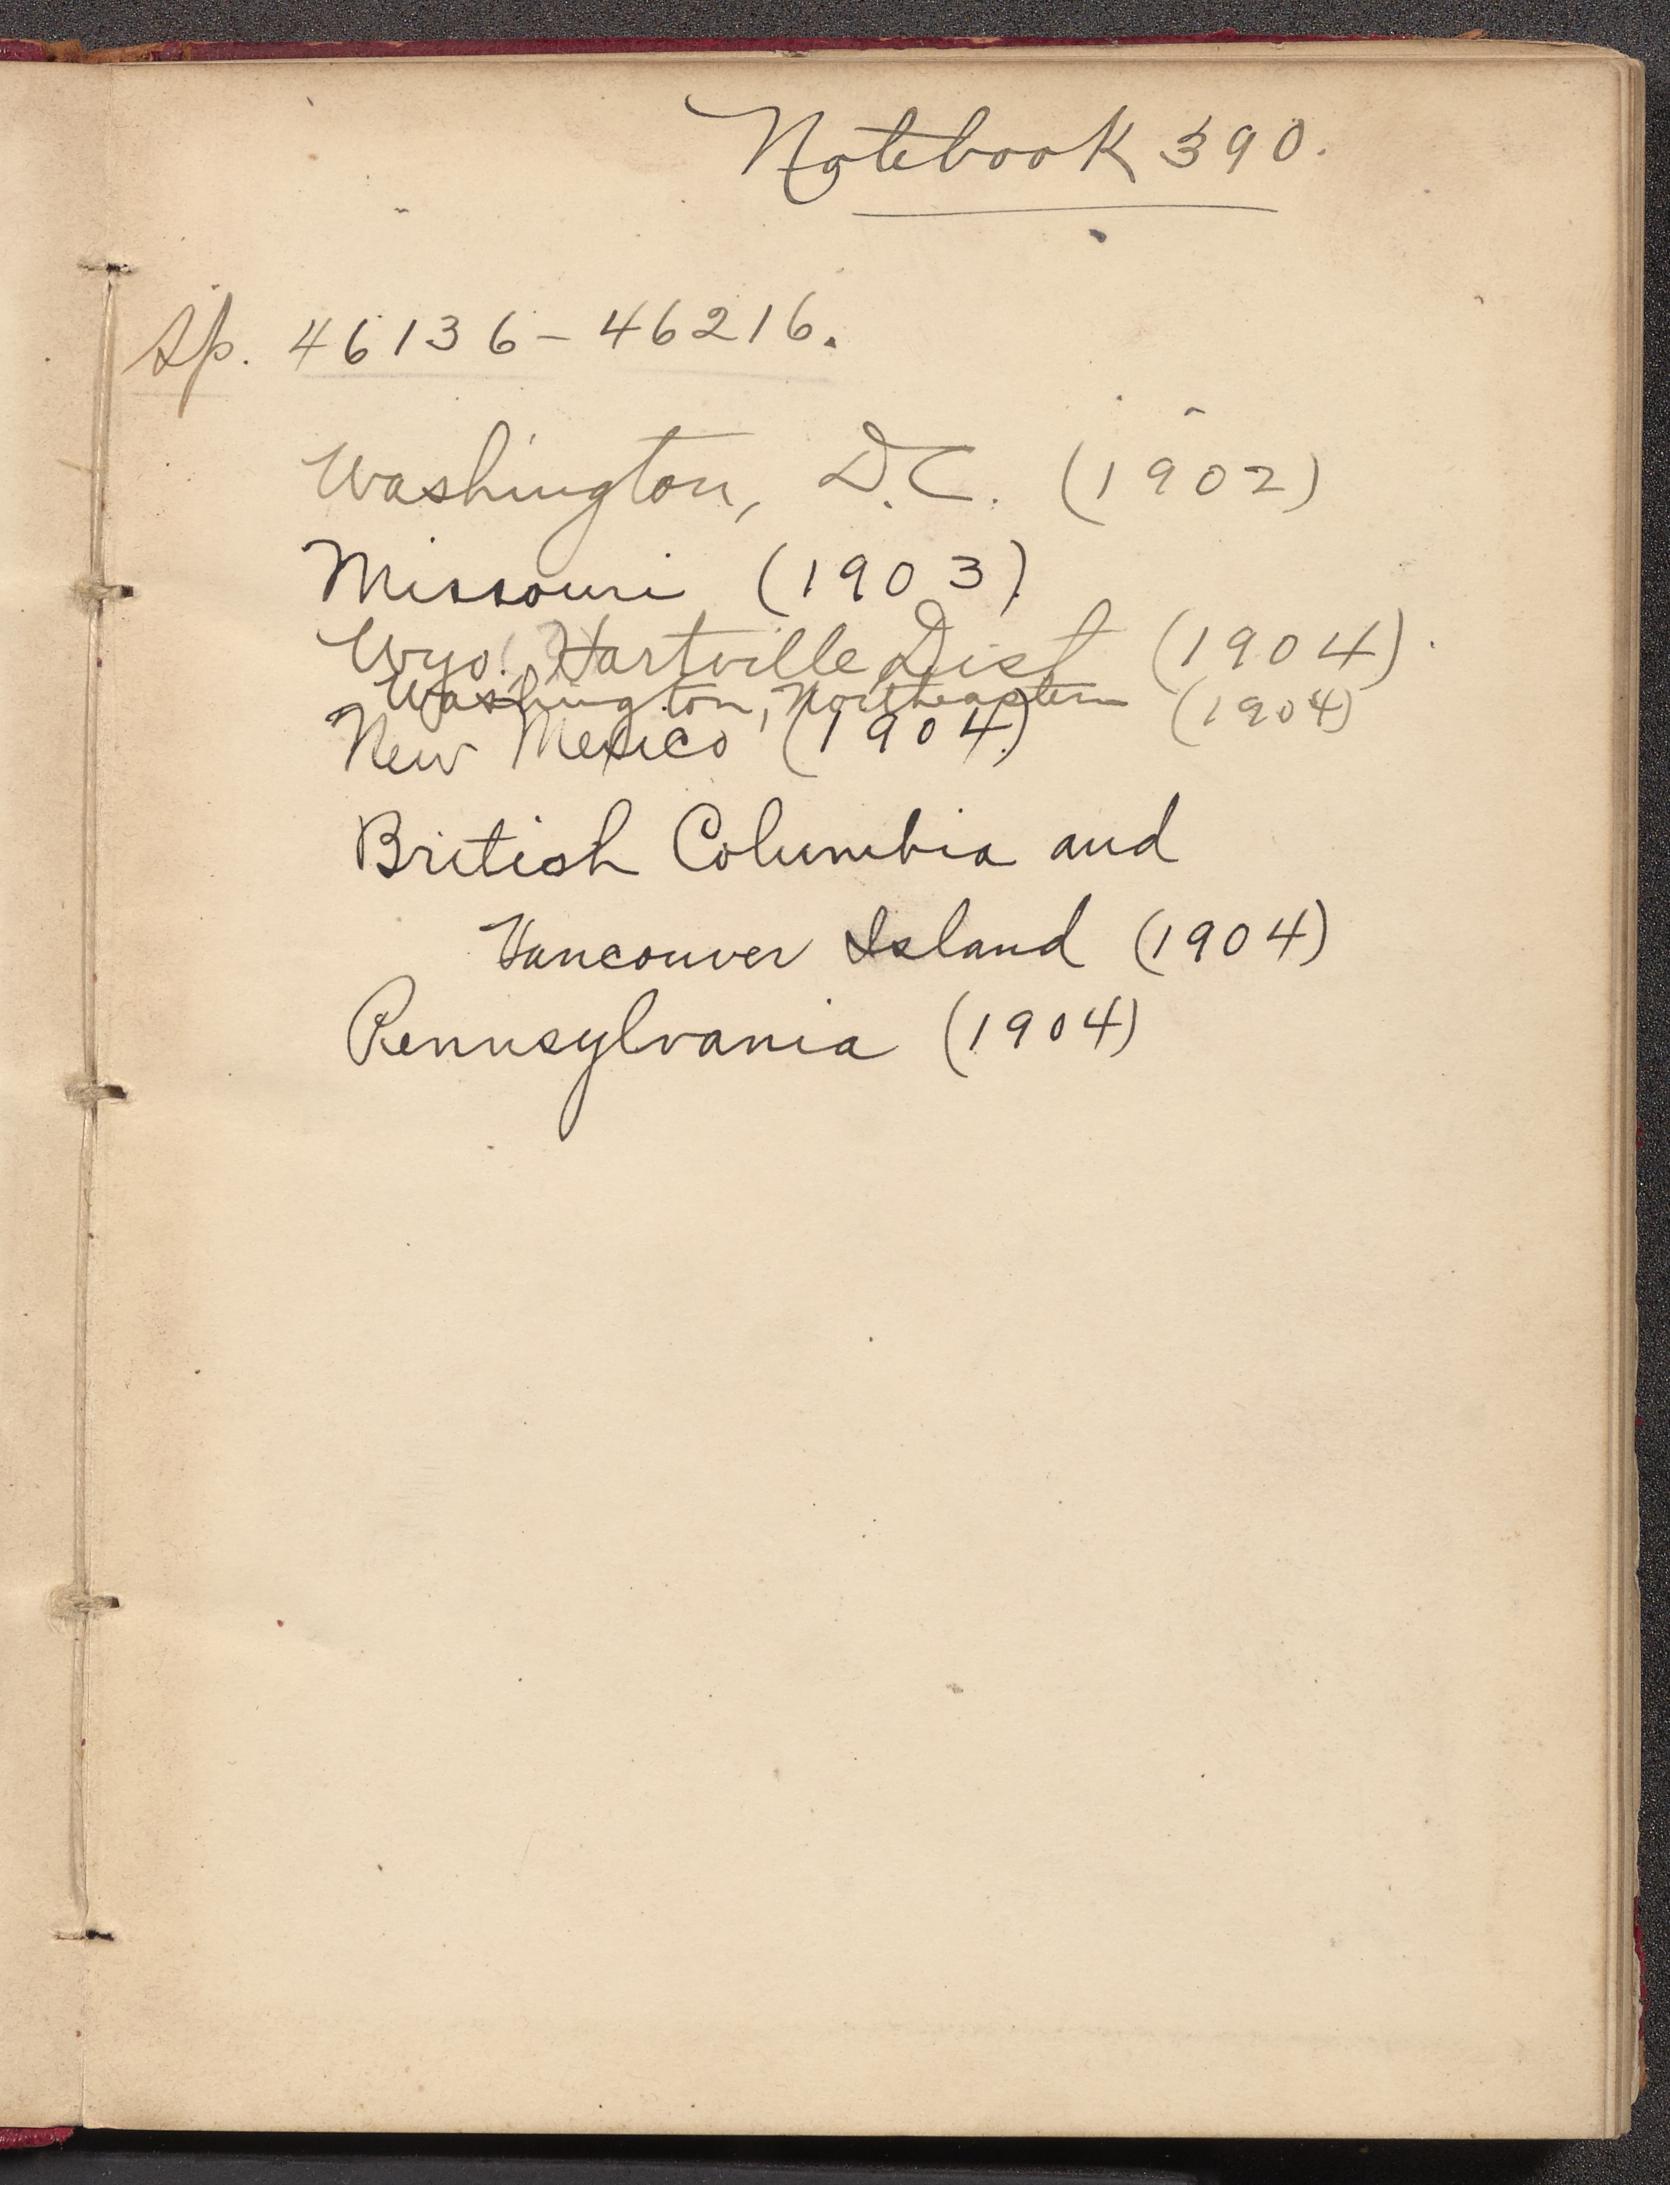 Notebook 390.
Sp. 46136-46216.
Washington, D.C. (1902)
Missouri (1903)
Wyo. Hartville Dist (1904).
Washington, Northeastern (1904)
New Mexico (1904)
British Columbia and
Vancouver Island (1904)
Pennsylvania (1904)